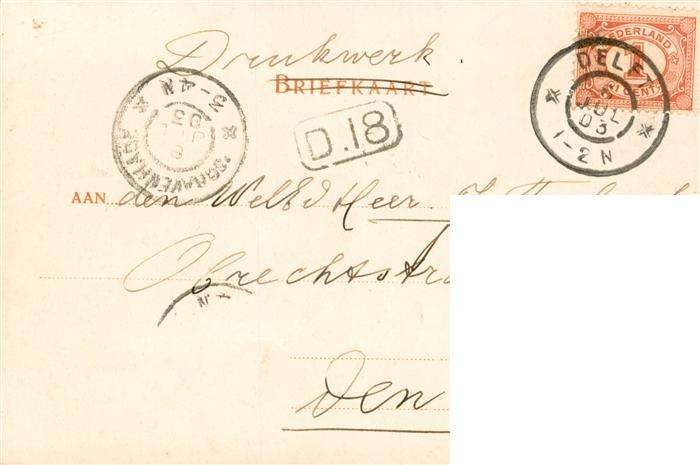 Drukwerk
BRIEFKAART
NEDERLAND
1
CENT
DELFT
JUL
03
1-2 N
'SGRAVENHAGE
03
3-4N
D.18
AAN den WelEd Heer
Obrechtstra
Den